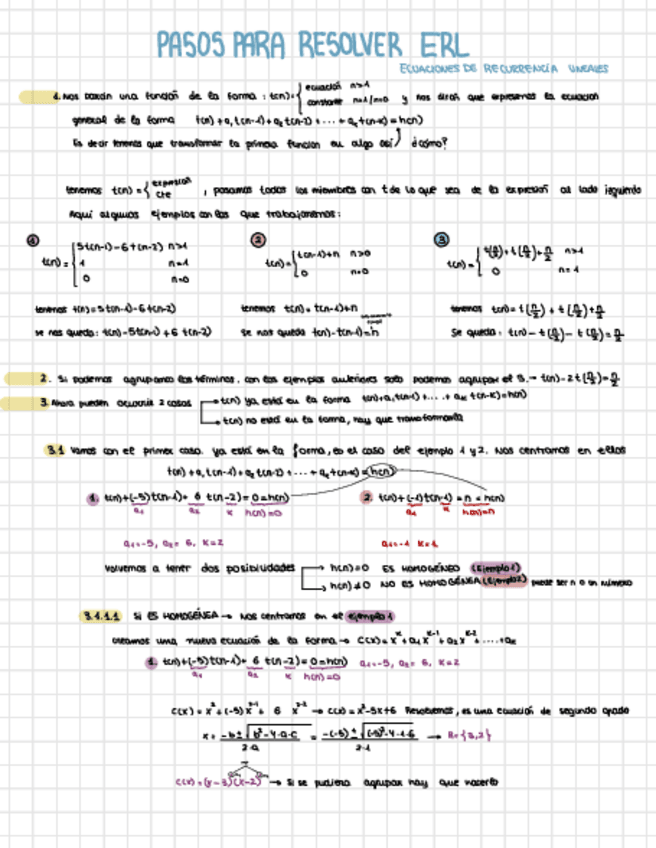 PASOS PARA RESOLVER ERL
ECUACIONES DE RECURRENCIA LINEALES
1. Nos darán una función de la forma: t(n)={ ecuación n>1
constante n=1/n=0 y nos dirán que expresemos la ecuación
general de la forma t(n)+a₁t(n-1)+a₂t(n-2)+...+aₖt(n-k)=h(n)
Es decir tenemos que transformar la primera función en algo así ¿cómo?
tenemos t(n)={ expresión
cte , pasamos todos los miembros con t de lo que sea de la expresión al lado izquierdo
Aquí algunos ejemplos con los que trabajaremos:
① t(n)={ 5t(n-1)-6t(n-2) n>1
1 n=1
0 n=0
② t(n)={ t(n-1)+n n>0
0 n=0
③ t(n)={ t(n/2)+t(n/2)+n/2 n>1
0 n=1
tenemos t(n)=5t(n-1)-6t(n-2)
se nos queda: t(n)-5t(n-1)+6t(n-2)
tenemos t(n)=t(n-1)+n
se nos queda t(n)-t(n-1)=n
tenemos t(n)=t(n/2)+t(n/2)+n/2
Se queda: t(n)-t(n/2)-t(n/2)=n/2
2. Si podemos agrupamos los términos, con los ejemplos anteriores solo podemos agrupar el 3.→ t(n)-2t(n/2)=n/2
3. Ahora pueden ocurrir 2 casos → t(n) ya está en la forma t(n)+a₁t(n-1)+...+aₖt(n-k)=h(n)
→ t(n) no está en la forma, hay que transformarla
3.1 Vamos con el primer caso. ya está en la forma, es el caso del ejemplo 1 y 2. Nos centramos en ellos
t(n)+a₁t(n-1)+a₂t(n-2)+...+aₖt(n-k)=h(n)
1. t(n)+(-5)t(n-1)+6t(n-2)=0=h(n)
a₁ a₂ k h(n)=0
2. t(n)+(-1)t(n-1)=n=h(n)
a₁ k h(n)=n
a₁=-5, a₂=6, k=2
a₁=-1 k=1
Volvemos a tener dos posibilidades → h(n)=0 ES HOMOGÉNEO (Ejemplo 1)
→ h(n)≠0 NO ES HOMOGÉNEA (Ejemplo 2) puede ser n o un número
3.1.1.1 Si ES HOMOGÉNEA → Nos centramos en el ejemplo 1
creamos una nueva ecuación de la forma → C(x)=xᵏ+a₁xᵏ⁻¹+a₂xᵏ⁻²+....+aₖ
1. t(n)+(-5)t(n-1)+6t(n-2)=0=h(n) a₁=-5, a₂=6, k=2
a₁ a₂ k h(n)=0
C(x)=x²+(-5)x²⁻¹+6x²⁻² → C(x)=x²-5x+6 Resolvemos, es una ecuación de segundo grado
x=(-b±√(b²-4·a·c))/(2·a)=(-(-5)±√((-5)²-4·1·6))/(2·1) → R={3,2}
C(x)=(x-3)(x-2) → Si se pudiera agrupar hay que hacerlo